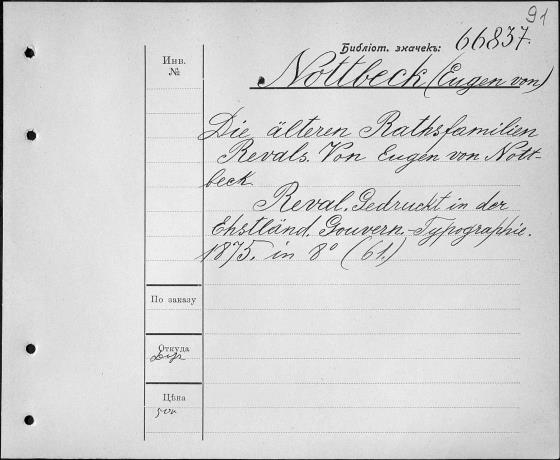 91
Библіот. значекъ: 66837.
Инв.
№
Nottbeck (Eugen von)
Die älteren Rathsfamilien
Revals. Von Eugen von Nott-
beck
Reval. Gedruckt in der
Ehstländ. Gouvern.-Typographie.
1875. in 8° (61.)
По заказу
Откуда
Цѣна